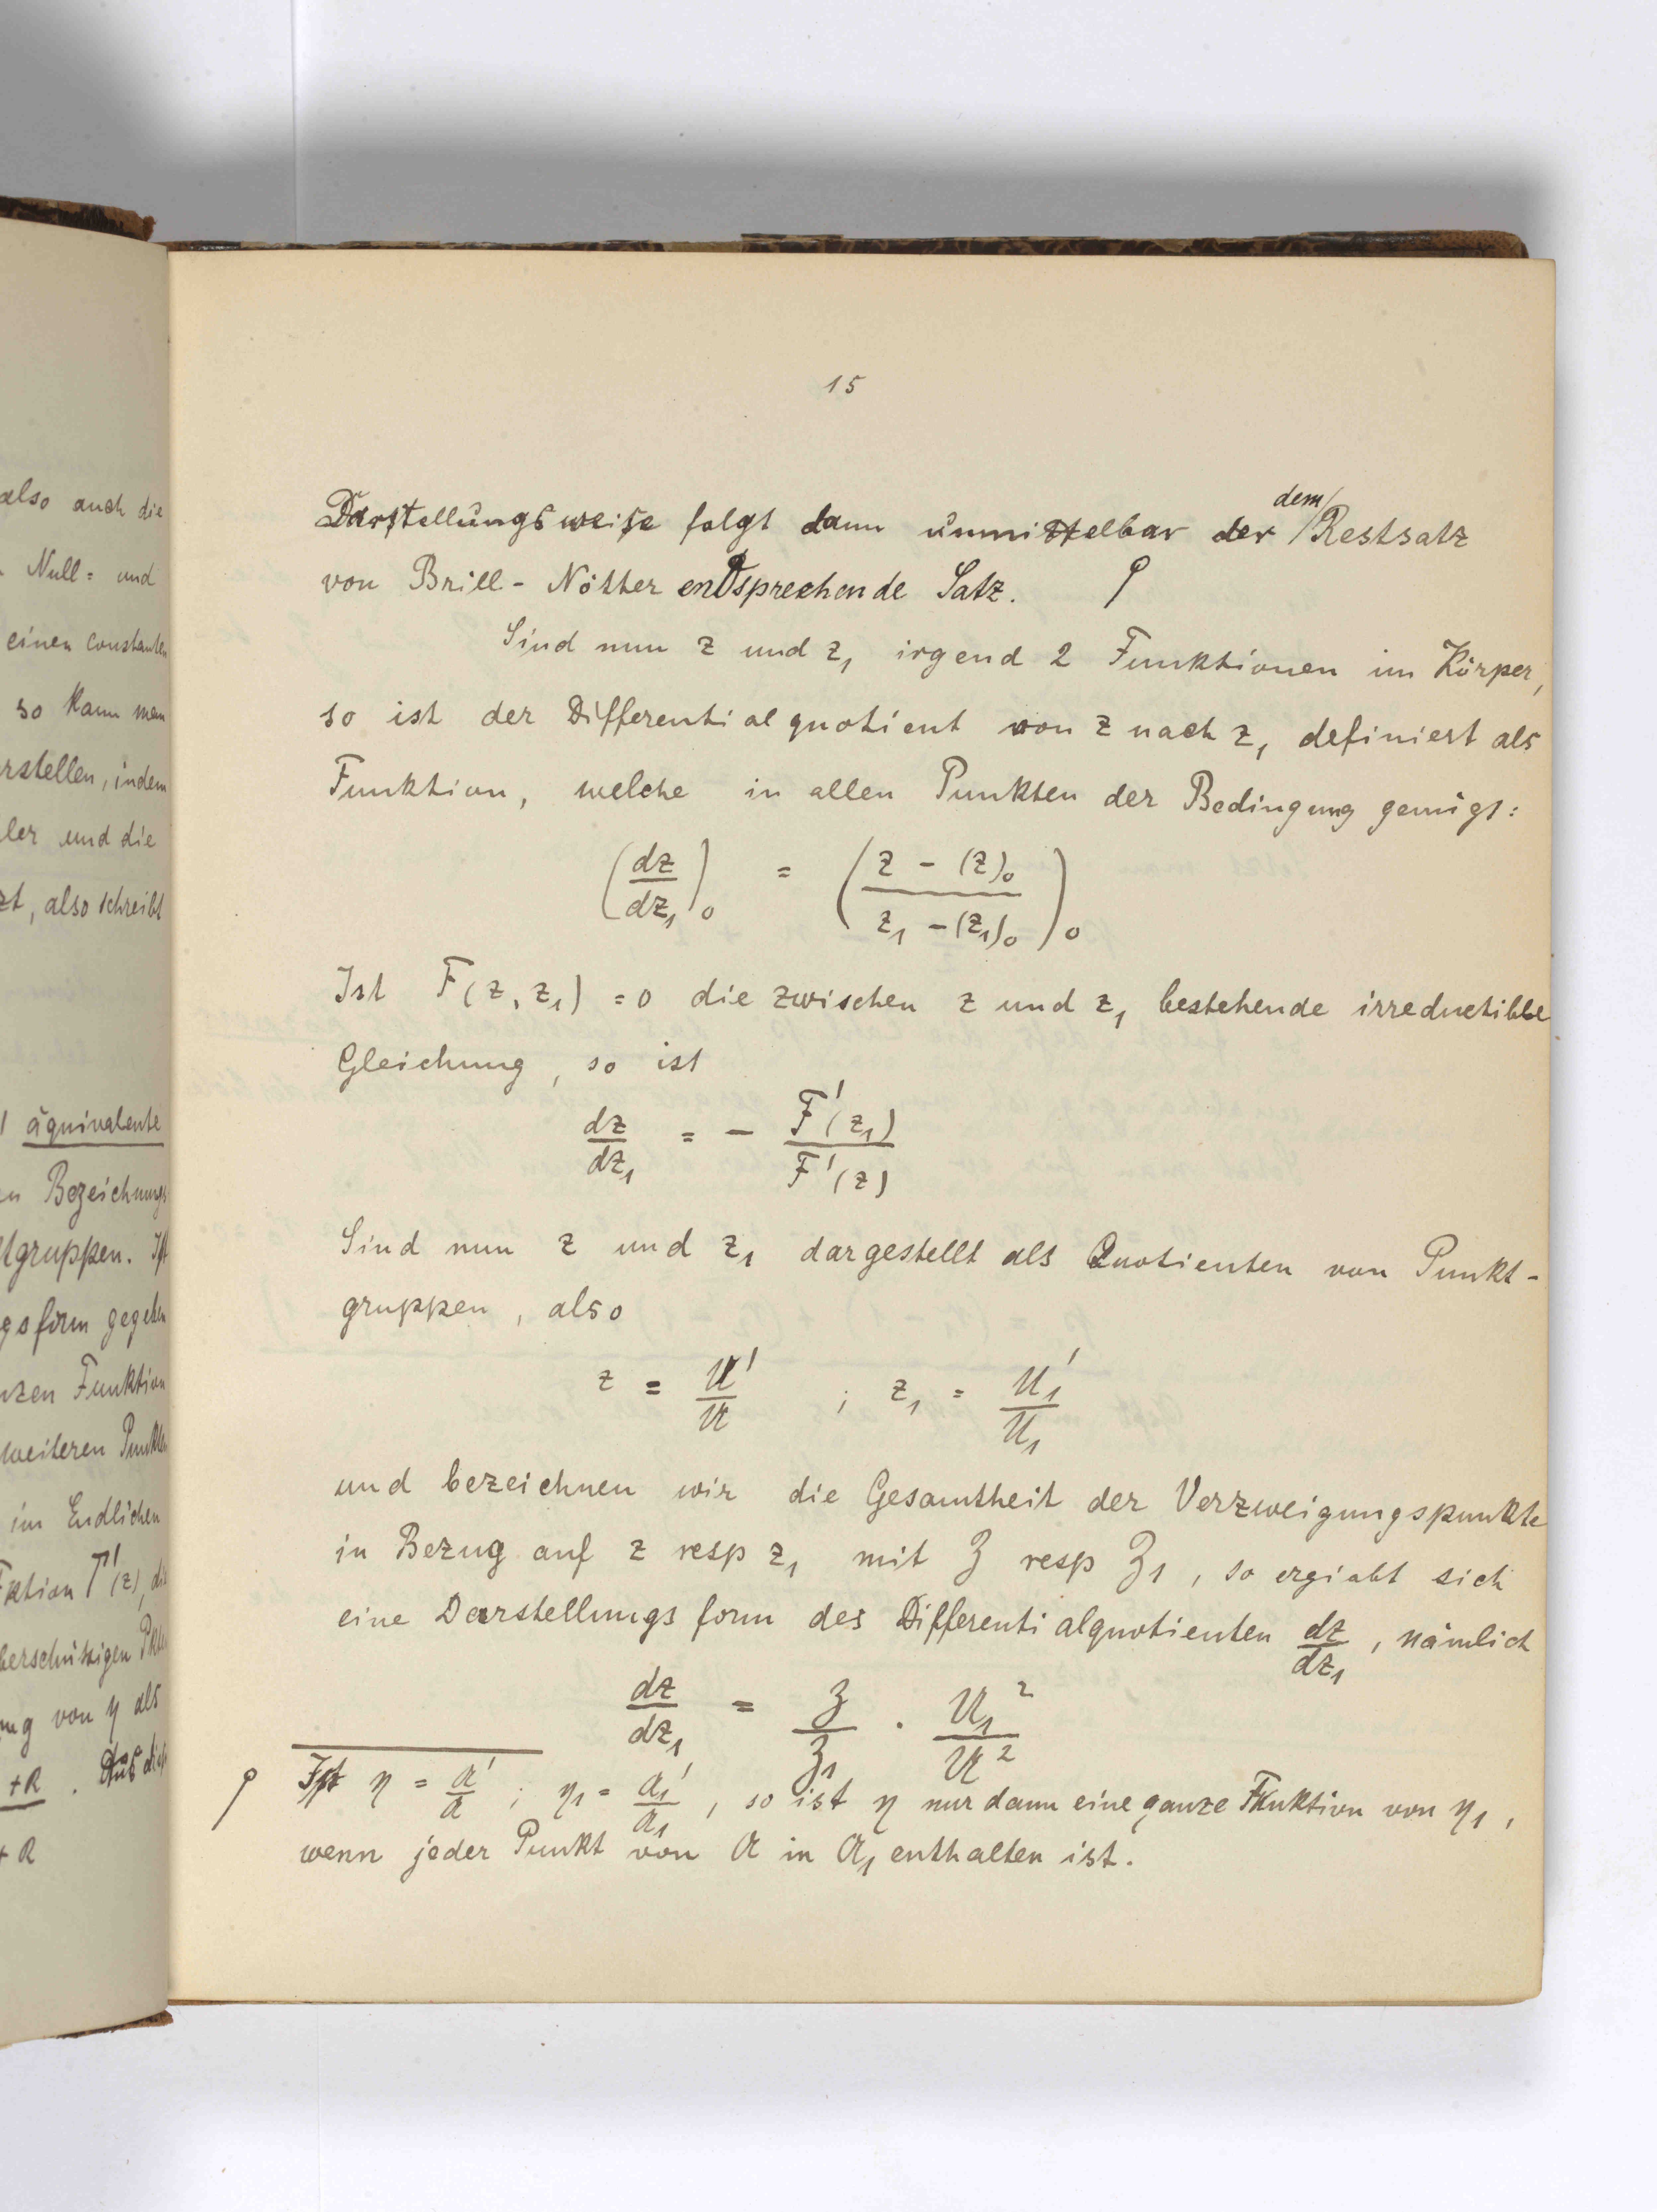 also auch die
Null= und
einen constanten
so kann man
rstellen, indem
ler und die
zt, also schreibt
äquivalente
Bezeichnungs
tgruppen. Ist
gsform gegeben
nzen Funktion
weiteren Punkten
im Endlichen
ktion Γ'(z), die
berschüssigen Pkten
ng von η als
+R . Aus dies
+R
15
Darstellungsweise folgt dann unmittelbar der dem Restsatz
von Brill-Nöther entsprechende Satz. ϙ
Sind nun z und z₁ irgend 2 Funktionen im Körper,
so ist der Differentialquotient von z nach z₁ definiert als
Funktion, welche in allen Punkten der Bedingung genügt:
(dz/dz₁)₀ = ((z - (z)₀)/(z₁ - (z₁)₀))₀
Ist F(z, z₁) = 0 die zwischen z und z₁ bestehende irreductible
Gleichung, so ist
dz/dz₁ = - F'(z₁)/F'(z)
Sind nun z und z₁ dargestellt als Quotienten von Punkt-
gruppen, also
z = U'/U ; z₁ = U₁'/U₁
und bezeichnen wir die Gesamtheit der Verzweigungspunkte
in Bezug auf z resp z₁ mit ℨ resp ℨ₁, so ergiebt sich
eine Darstellungsform des Differentialquotienten dz/dz₁, nämlich
dz/dz₁ = ℨ/ℨ₁ · U₁²/U²
ϙ Ist η = a'/a ; η₁ = a₁'/a₁, so ist η nur dann eine ganze Funktion von η₁,
wenn jeder Punkt von a in a₁ enthalten ist.